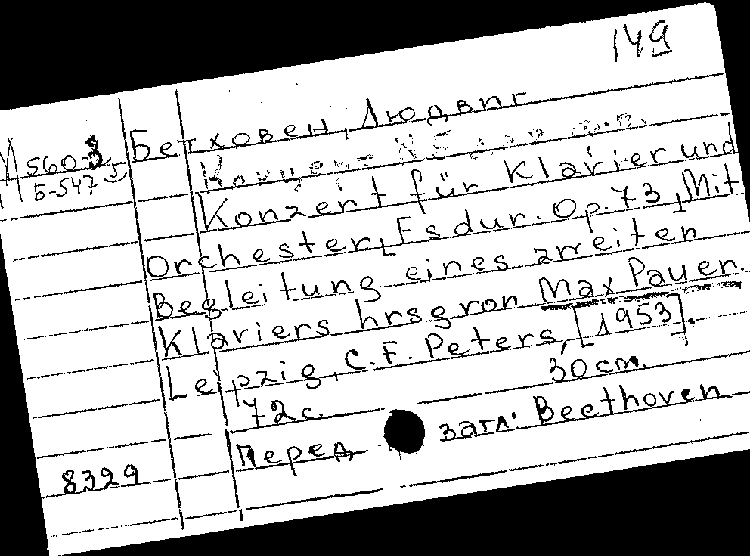 149
Бетховен, Людвиг
М 560-3
5-547
Концерт N 5 для ф.п.
Konzert für Klavier und
Orchester, Es dur. Op. 73, Mit
Begleitung eines zweiten
Klaviers hrsg von Max Pauer.
Leipzig, C. F. Peters, [1953].
72 с. 30 cm.
Перед загл: Beethoven
8329